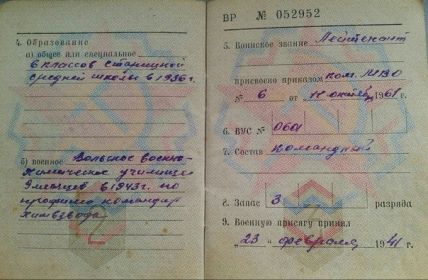 4. Образование
а) общее или специальное
6 классов Старицкой
средней школы в 1936 г.
б) военное Вольское военно-
химическое училище
9 месяцев в 1943 г. по
профилю командир
химвзвода
ВР № 052952
5. Воинское звание Лейтенант
присвоено приказом ком. МВО
№ 6 от „11" октября 1961 г.
6. ВУС № 0601
7. Состав командный
8. Запас 3 разряда
9. Военную присягу принял
„23" февраля 1941 г.